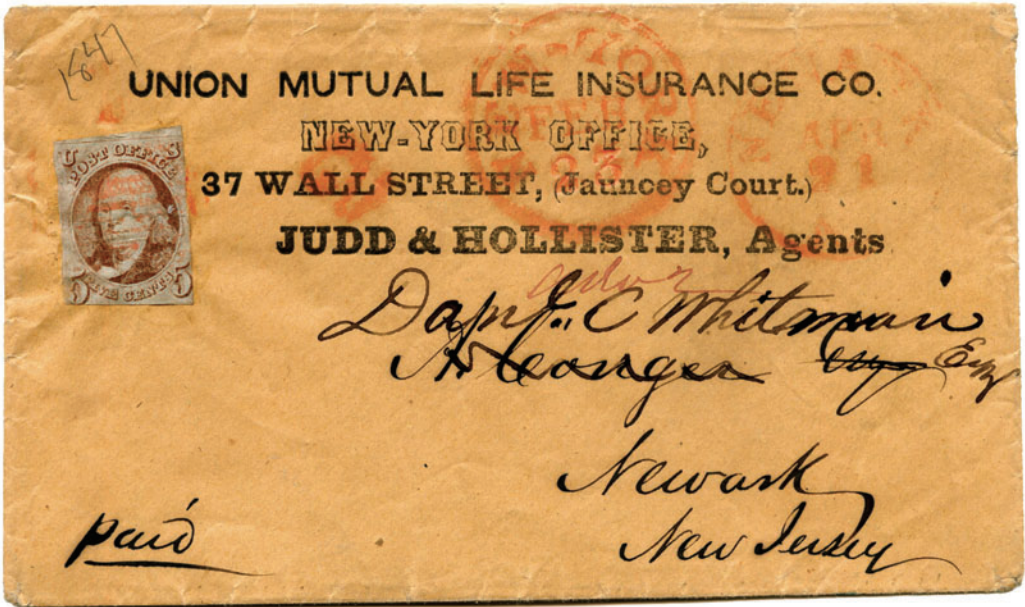 1847
UNION MUTUAL LIFE INSURANCE CO.
NEW-YORK OFFICE,
37 WALL STREET, (Jauncey Court.)
JUDD & HOLLISTER, Agents
U S
POST OFFICE
5 FIVE CENTS 5
C Whitman
Conger Esq
Newark
New Jersey
Paid